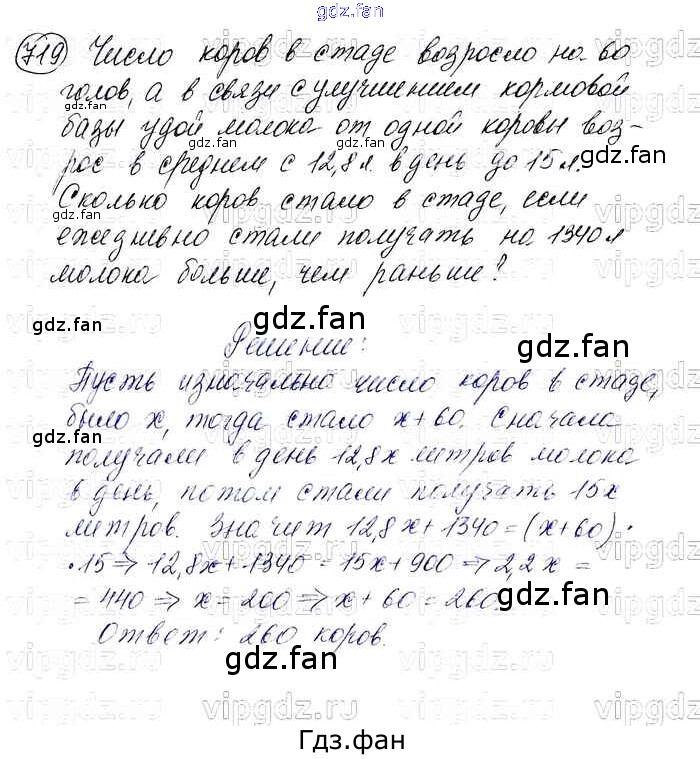 gdz.fan
719 Число коров в стаде возросло на 60
голов, а в связи с улучшением кормовой
базы удой молока от одной коровы воз-
рос в среднем с 12,8 л. в день до 15 л.
Сколько коров стало в стаде, если
ежедневно стали получать на 1340 л
молока больше, чем раньше?
Решение:
Пусть изначально число коров в стаде,
было x, тогда стало x+60. Сначала
получали в день 12,8x литров молока
в день, потом стали получать 15x
литров. Значит 12,8x+1340=(x+60)·
·15 ⇒ 12,8x+1340=15x+900 ⇒ 2,2x=
=440 ⇒ x=200 ⇒ x+60=260.
Ответ: 260 коров.
gdz.fan
Гдз.фан